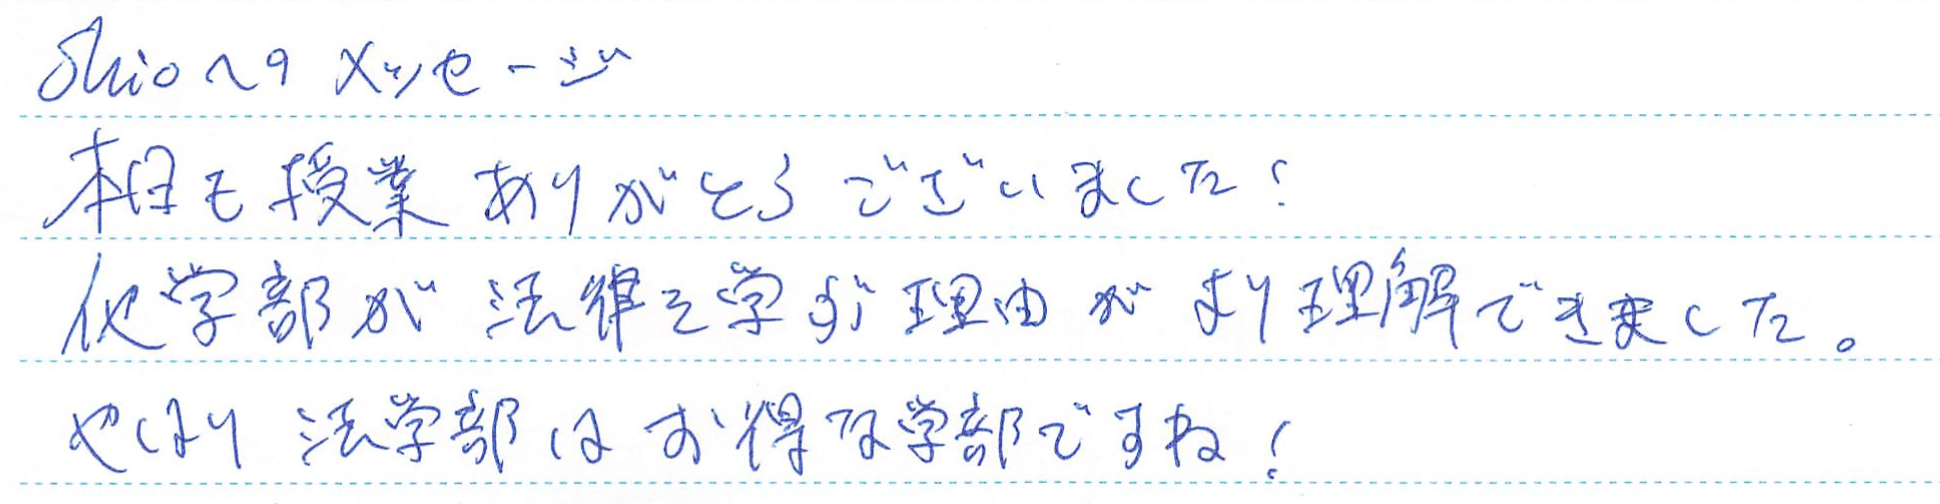 Shioへのメッセージ
本日も授業ありがとうございました！
他学部が法律を学ぶ理由がより理解できました。
やはり法学部はお得な学部ですね！